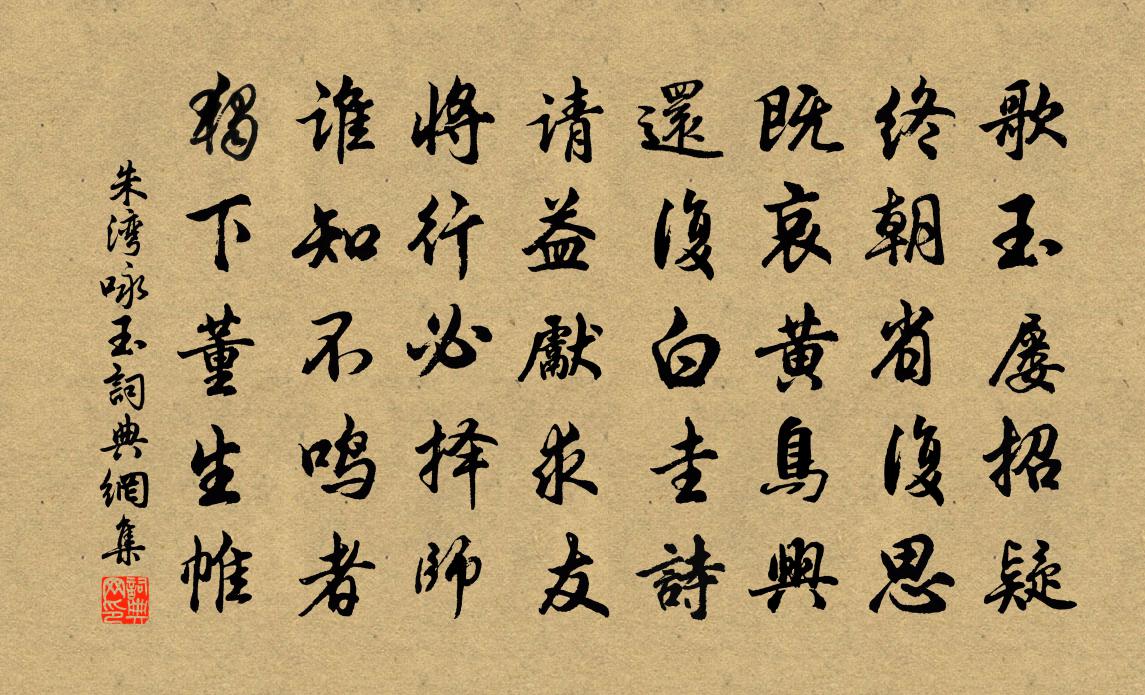 歌玉屡招疑
终朝省復思
既哀黄鳥興
還復白圭詩
请益獻求友
将行必择师
谁知不鸣者
獨下董生帷
朱湾咏玉詞典網集
詞典网印